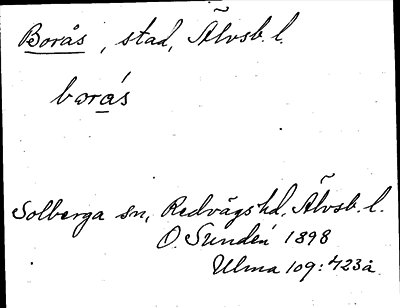 Borås, stad, Älvsb. l.
borás
Solberga sn, Redvägs hd, Älvsb. l.
O. Sundén 1898
Ulma 109:423a